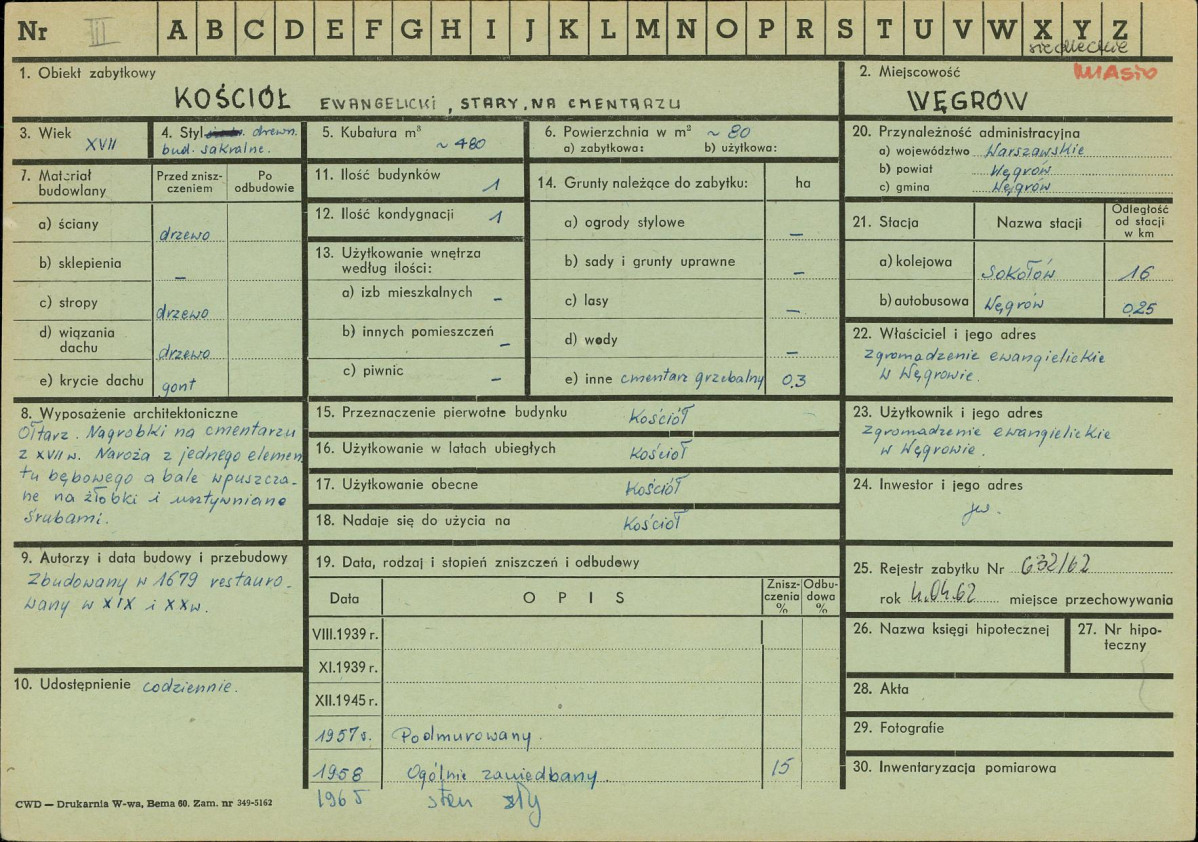 Nr III A B C D E F G H I J K L M N O P R S T U V W X Y Z
siedleckie
1. Obiekt zabytkowy
KOŚCIÓŁ EWANGELICKI, STARY, NA CMENTARZU
2. Miejscowość MIASTO
WĘGRÓW
3. Wiek XVII
4. Styl drewn.
bud. sakralne.
5. Kubatura m³
~ 480
6. Powierzchnia w m² ~ 80
a) zabytkowa: b) użytkowa:
7. Materiał budowlany
Przed zniszczeniem
Po odbudowie
a) ściany drzewo
b) sklepienia –
c) stropy drzewo
d) wiązania dachu drzewo
e) krycie dachu gont
8. Wyposażenie architektoniczne
Ołtarz. Nagrobki na cmentarzu
z XVII w. Naroża z jednego elemen
tu bębowego a bale wpuszcza-
ne na żłobki i usztywniane
śrubami.
9. Autorzy i data budowy i przebudowy
Zbudowany w 1679 restauro-
wany w XIX i XX w.
10. Udostępnienie codziennie.
11. Ilość budynków 1
12. Ilość kondygnacji 1
13. Użytkowanie wnętrza
według ilości:
a) izb mieszkalnych –
b) innych pomieszczeń –
c) piwnic –
14. Grunty należące do zabytku: ha
a) ogrody stylowe –
b) sady i grunty uprawne –
c) lasy –
d) wody –
e) inne cmentarz grzebalny 0.3
15. Przeznaczenie pierwotne budynku Kościół
16. Użytkowanie w latach ubiegłych Kościół
17. Użytkowanie obecne Kościół
18. Nadaje się do użycia na Kościół
19. Data, rodzaj i stopień zniszczeń i odbudowy
Data OPIS Zniszczenia % Odbudowa %
VIII.1939 r.
XI.1939 r.
XII.1945 r.
1957 r. Podmurowany.
1958 Ogólnie zaniedbany. 15
1965 stan zły
20. Przynależność administracyjna
a) województwo Warszawskie
b) powiat Węgrów
c) gmina Węgrów
21. Stacja Nazwa stacji Odległość od stacji w km
a) kolejowa Sokołów 16
b) autobusowa Węgrów 0,25
22. Właściciel i jego adres
zgromadzenie ewangielickie
w Węgrowie.
23. Użytkownik i jego adres
zgromadzenie ewangielickie
w Węgrowie.
24. Inwestor i jego adres
jw.
25. Rejestr zabytku Nr 632/62
rok 4.04.62 miejsce przechowywania
26. Nazwa księgi hipotecznej
27. Nr hipoteczny
28. Akta
29. Fotografie
30. Inwentaryzacja pomiarowa
CWD — Drukarnia W-wa, Bema 60. Zam. nr 349-5162